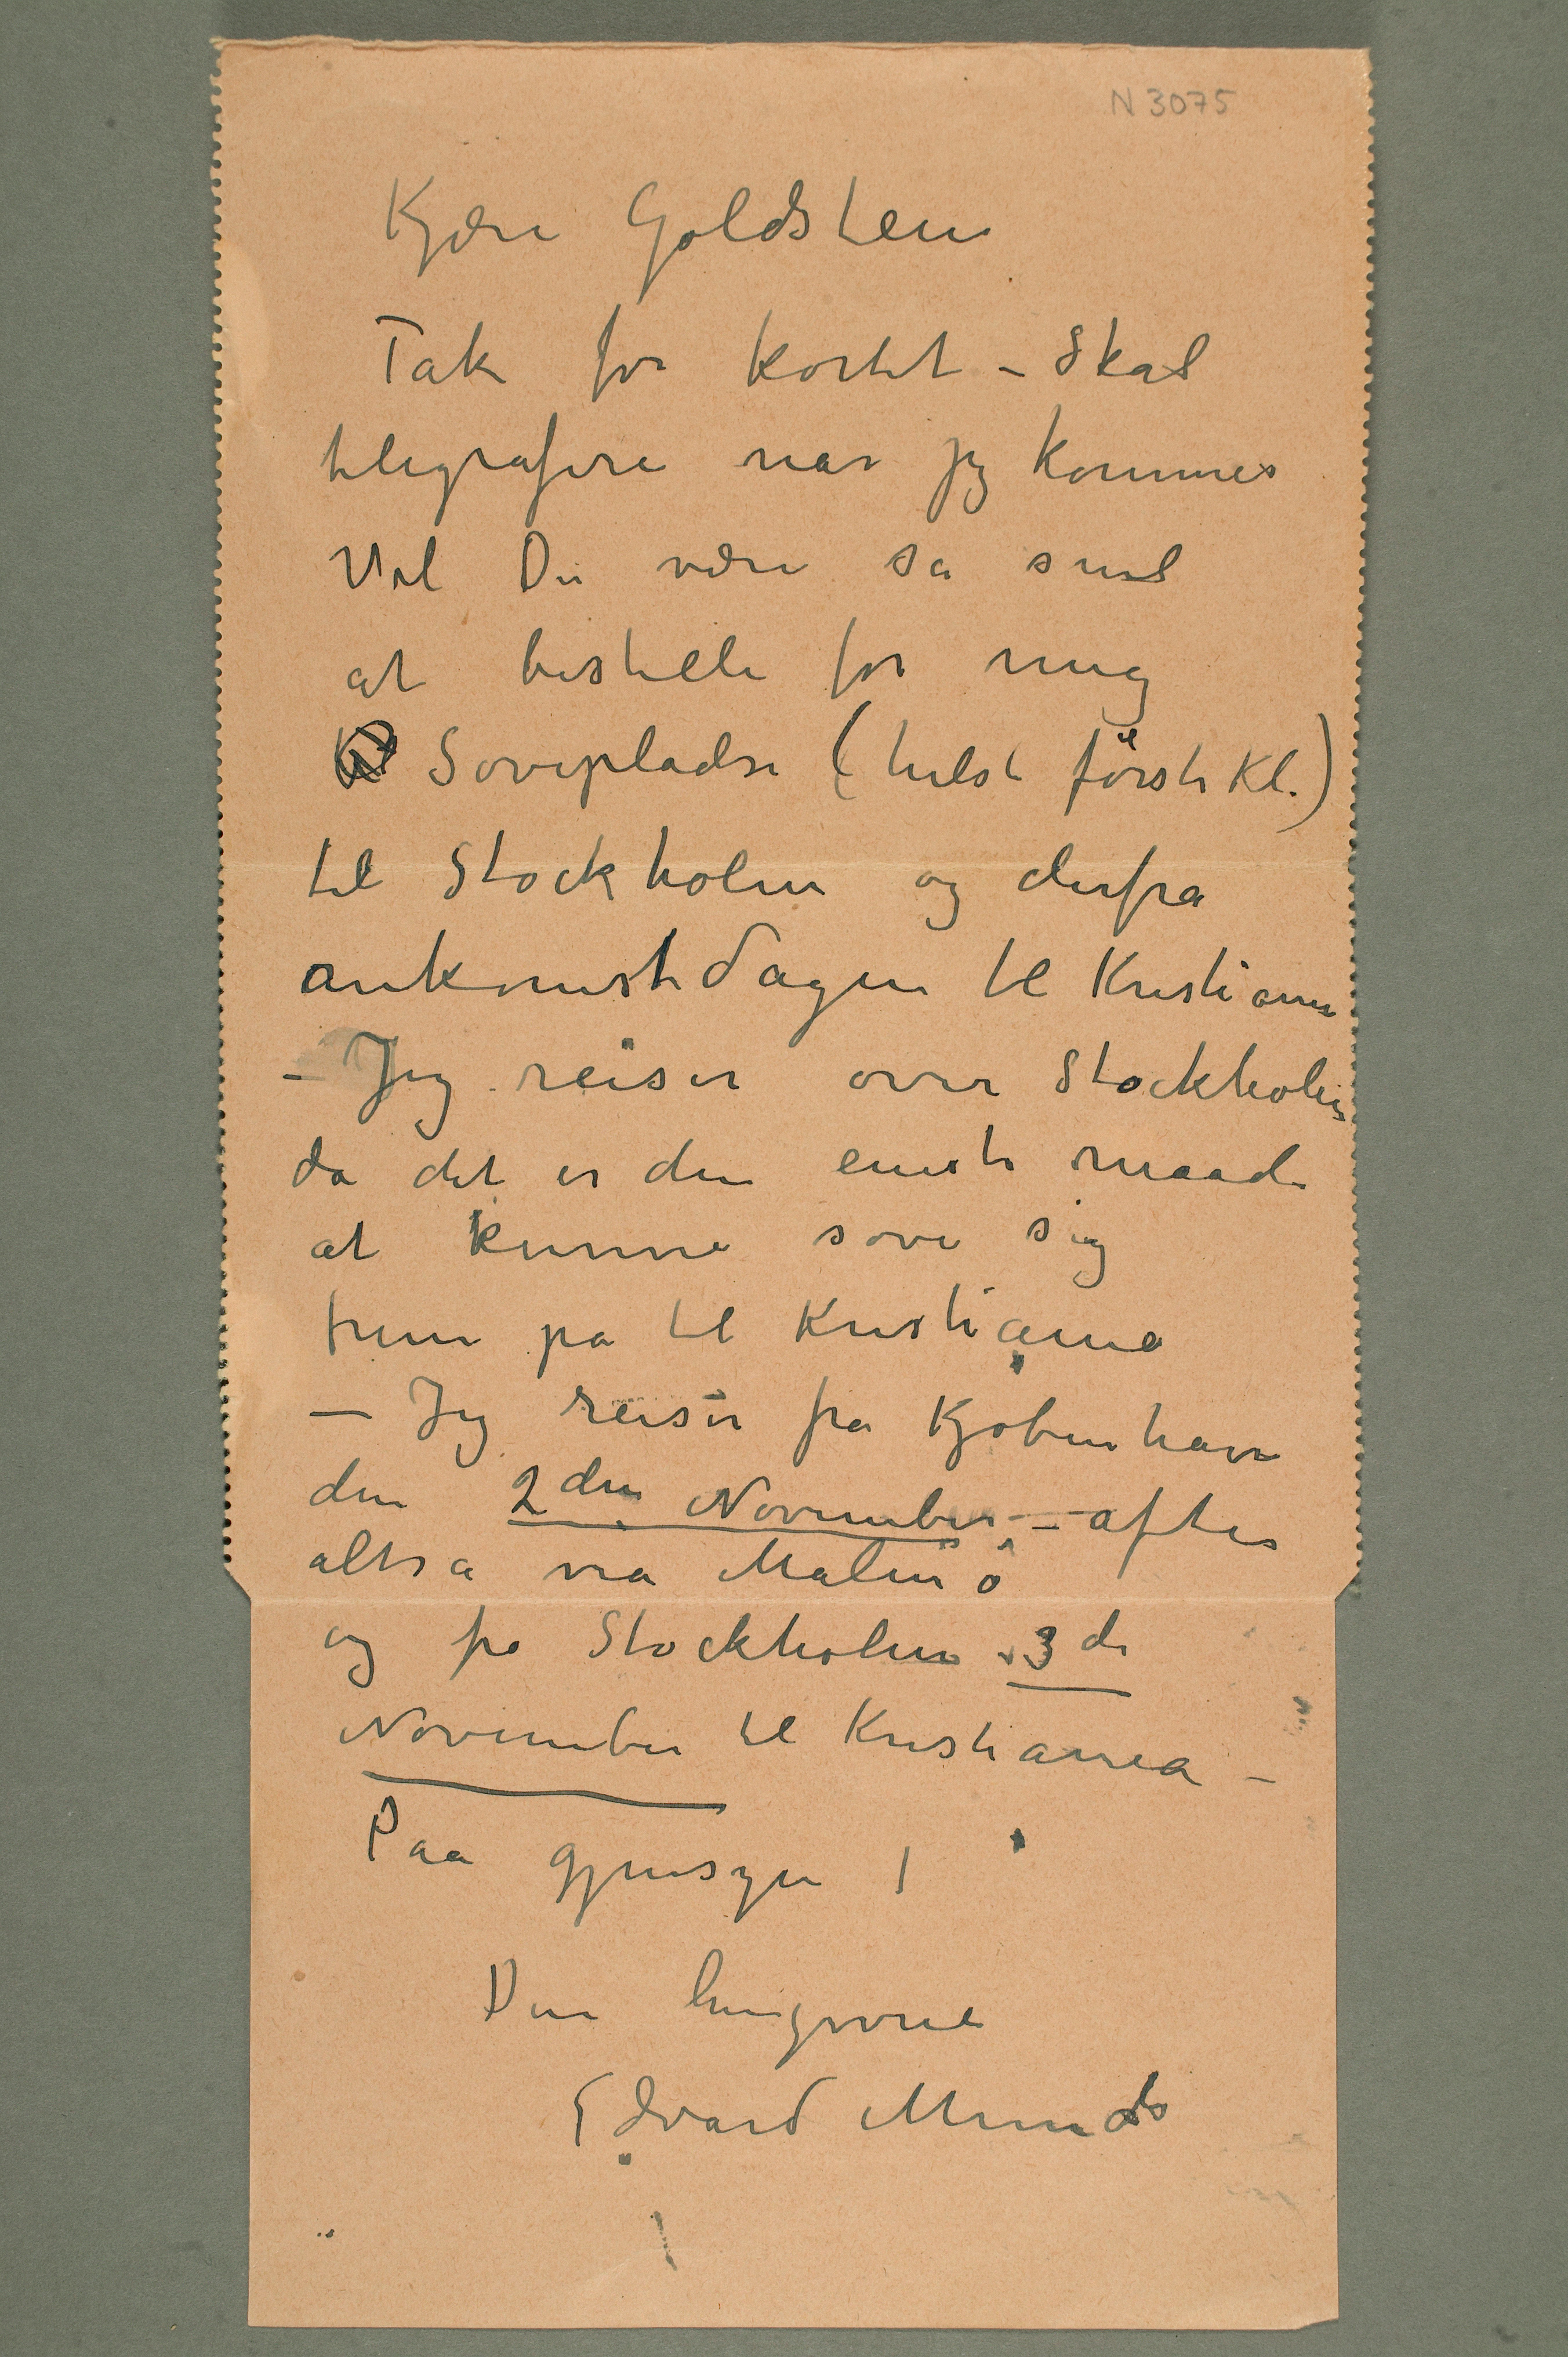 N 3075
Kjære Goldstein
Tak for kortet – Skal
telegrafere når jeg kommer
Vil Du være så snil
at bestille for mig
Soveplads (helst første Kl.)
til Stockholm og derfra
ankomstdagen til Kristiania
– Jeg reiser over Stockholm
da det er den eneste maade
at kunne sove sig
frem på til Kristiania
– Jeg reiser fra Kjøbenhavn
den 2den November – aften
altså via Malmö
og fra Stockholm 3de
November til Kristiania –
Paa gjensyn !
Din hengivne
Edvard Munch